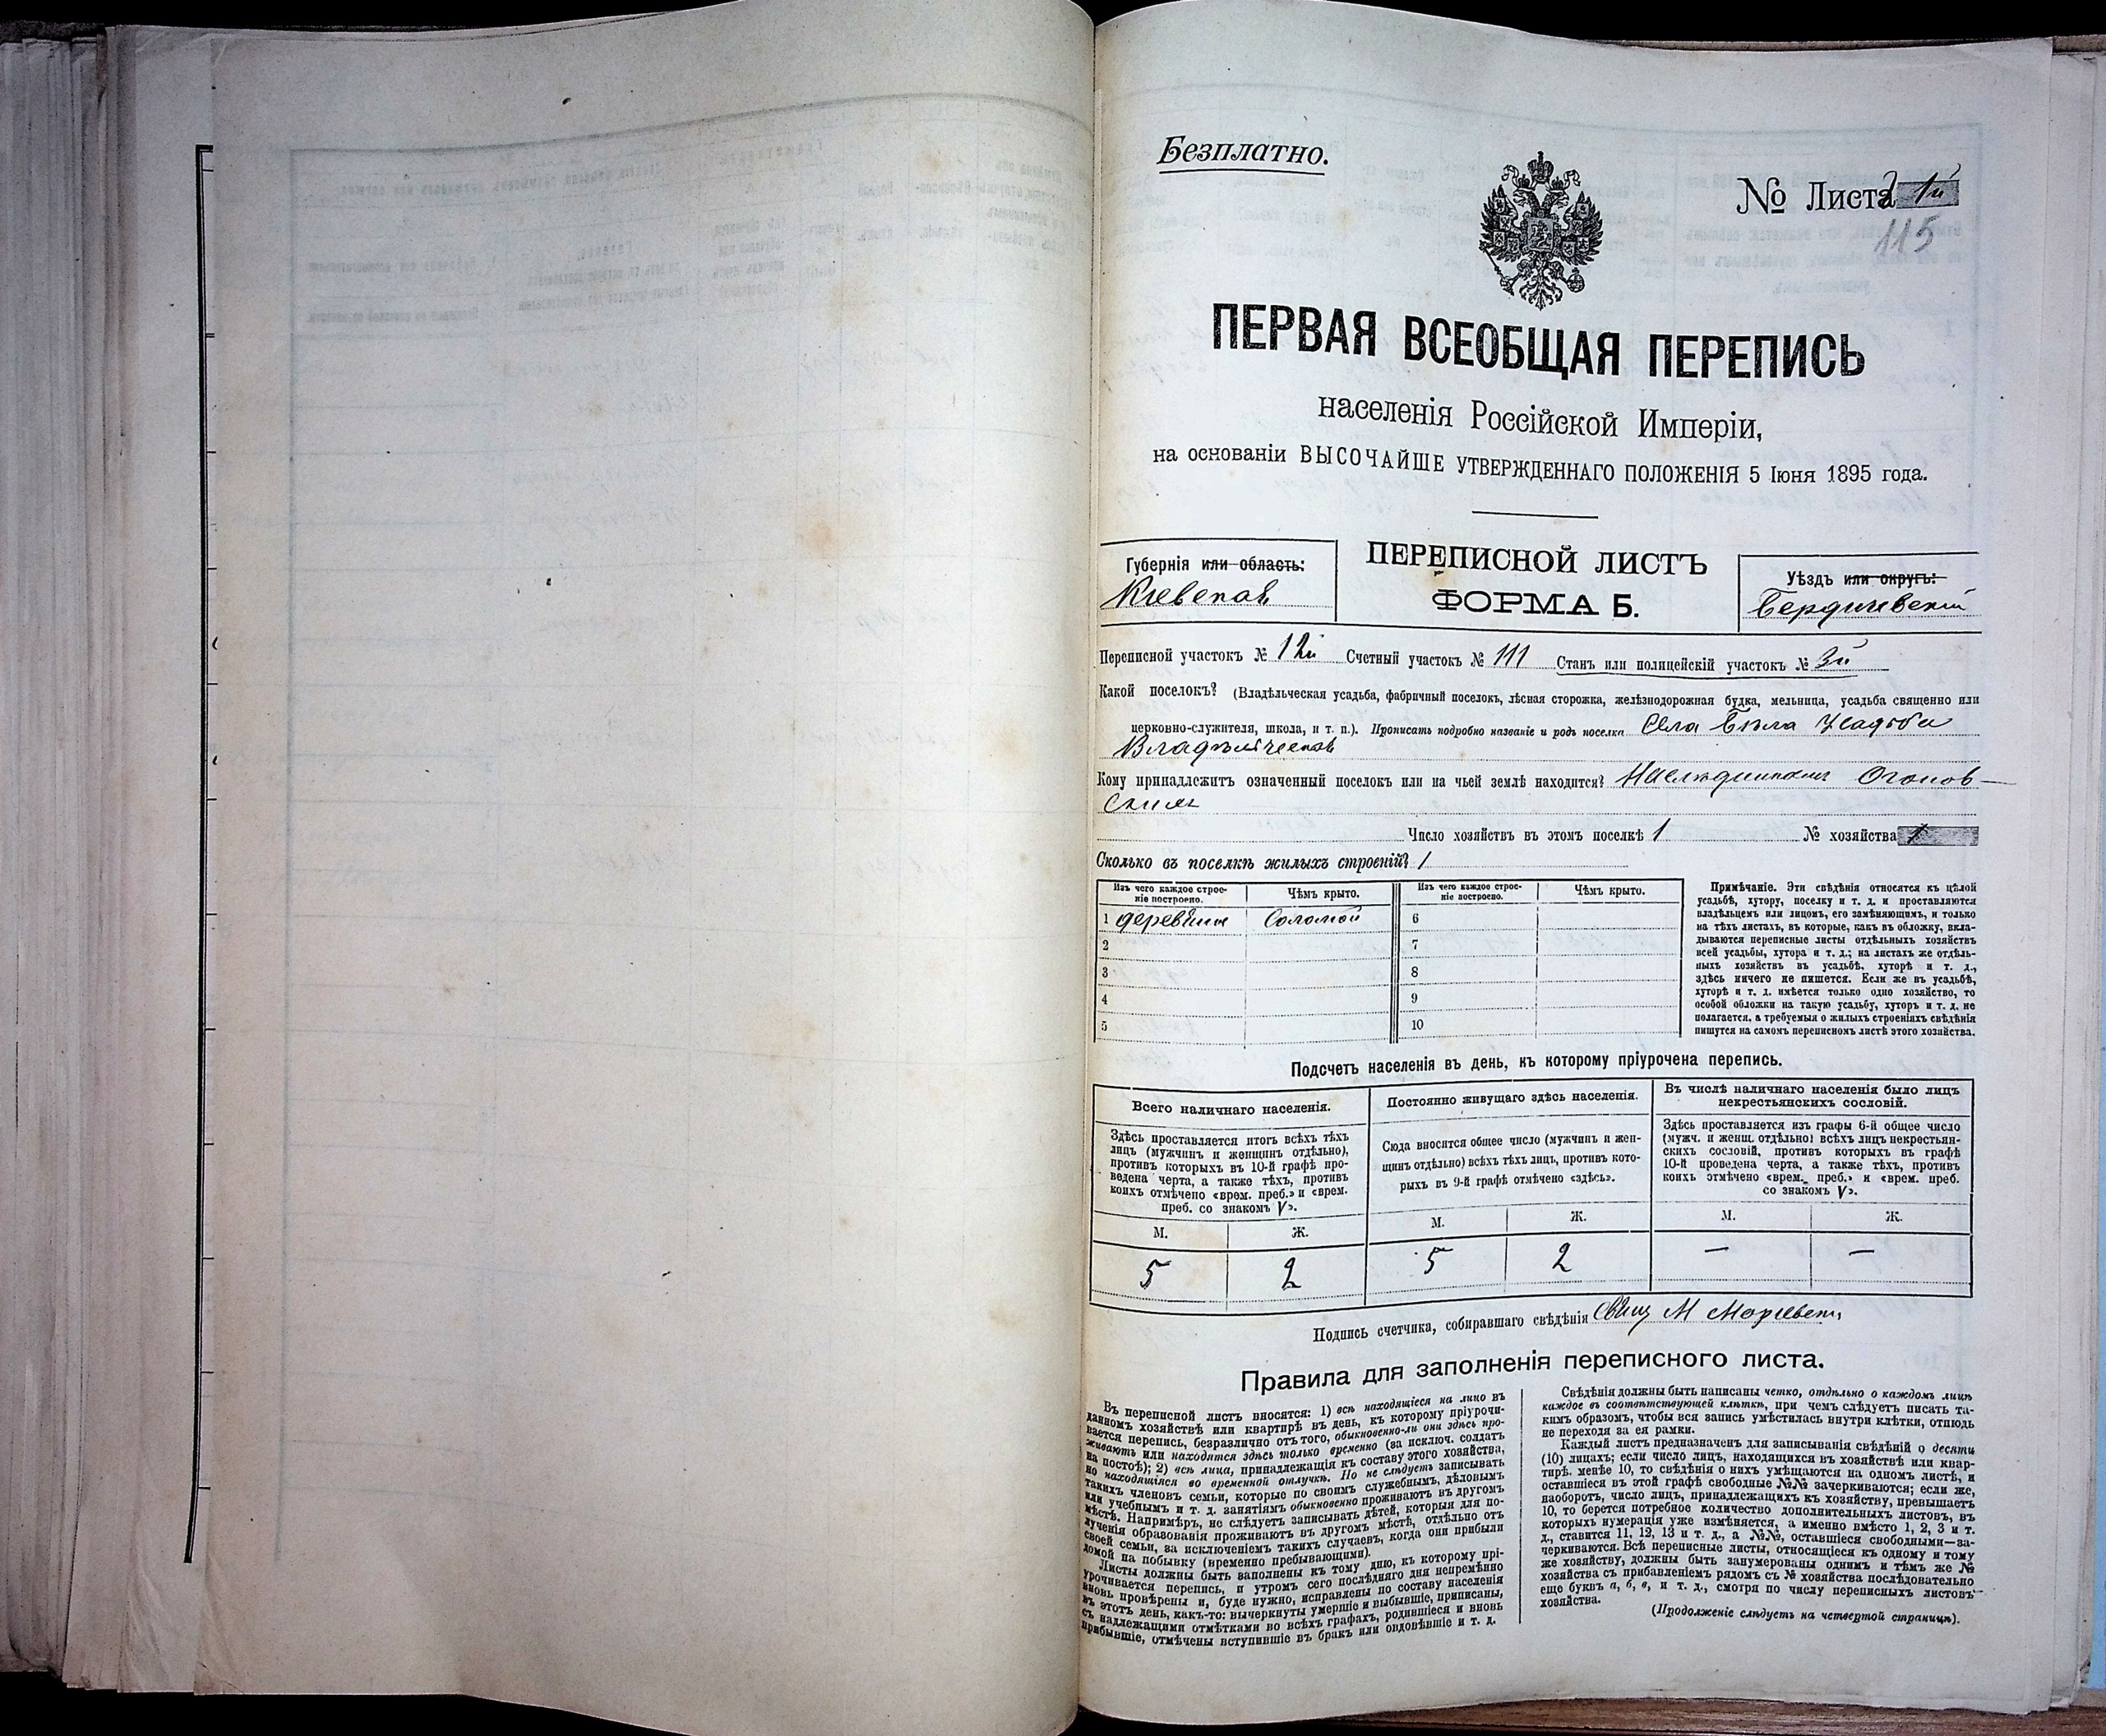 Безплатно.
№ Листа 1й
115
ПЕРВАЯ ВСЕОБЩАЯ ПЕРЕПИСЬ
населенія Россійской Имперіи,
на основаніи ВЫСОЧАЙШЕ УТВЕРЖДЕННАГО ПОЛОЖЕНІЯ 5 Іюня 1895 года.
Губернія или область:
Кіевская
ПЕРЕПИСНОЙ ЛИСТЪ
ФОРМА Б.
Уѣздъ или округъ:
Бердичевскій
Переписной участокъ № 12й Счетный участокъ № 111 Станъ или полицейскій участокъ № 3й
Какой поселокъ? (Владѣльческая усадьба, фабричный поселокъ, лѣсная сторожка, желѣзнодорожная будка, мельница, усадьба священно или
церковно-служителя, школа, и т. п.). Прописать подробно названіе и родъ поселка Села Бѣла Усадьба
Владѣльческая
Кому принадлежитъ означенный поселокъ или на чьей землѣ находится? Наслѣдникамъ
скимъ
Число хозяйствъ въ этомъ поселкѣ 1 № хозяйства 1
Сколько въ поселкѣ жилыхъ строеній? 1
Изъ чего каждое строе-
ніе построено.
Чѣмъ крыто.
Изъ чего каждое строе-
ніе построено.
Чѣмъ крыто.
1 Соломой 6
2 7
3 8
4 9
5 10
Примѣчаніе. Эти свѣдѣнія относятся къ цѣлой
усадьбѣ, хутору, поселку и т. д. и проставляются
владѣльцемъ или лицомъ, его замѣняющимъ, и только
на тѣхъ листахъ, въ которые, какъ въ обложку, вкла-
дываются переписные листы отдѣльныхъ хозяйствъ
всей усадьбы, хутора и т. д.; на листахъ же отдѣль-
ныхъ хозяйствъ въ усадьбѣ, хуторѣ и т. д.,
здѣсь ничего не пишется. Если же въ усадьбѣ,
хуторѣ и т. д. имѣется только одно хозяйство, то
особой обложки на такую усадьбу, хуторъ и т. д. не
полагается, а требуемыя о жилыхъ строеніяхъ свѣдѣнія
пишутся на самомъ переписномъ листѣ этого хозяйства.
Подсчетъ населенія въ день, къ которому пріурочена перепись.
Всего наличнаго населенія.
Здѣсь проставляется итогъ всѣхъ тѣхъ
лицъ (мужчинъ и женщинъ отдѣльно),
противъ которыхъ въ 10-й графѣ про-
ведена черта, а также тѣхъ, противъ
коихъ отмѣчено «врем. преб.» и «врем.
преб. со знакомъ V».
М. Ж.
5 2
Постоянно живущаго здѣсь населенія.
Сюда вносится общее число (мужчинъ и жен-
щинъ отдѣльно) всѣхъ тѣхъ лицъ, противъ кото-
рыхъ въ 9-й графѣ отмѣчено «здѣсь».
М. Ж.
5 2
Въ числѣ наличнаго населенія было лицъ
некрестьянскихъ сословій.
Здѣсь проставляется изъ графы 6-й общее число
(мужч. и женщ. отдѣльно) всѣхъ лицъ некрестьян-
скихъ сословій, противъ которыхъ въ графѣ
10-й проведена черта, а также тѣхъ, противъ
коихъ отмѣчено «врем. преб.» и «врем. преб.
со знакомъ V».
М. Ж.
— —
Подпись счетчика, собиравшаго свѣдѣнія М
Правила для заполненія переписного листа.
Въ переписной листъ вносятся: 1) всѣ находящіеся на лицо въ
данномъ хозяйствѣ или квартирѣ въ день, къ которому пріурочи-
вается перепись, безразлично отъ того, обыкновенно-ли они здѣсь про-
живаютъ или находятся здѣсь только временно (за исключ. солдатъ
на постоѣ); 2) всѣ лица, принадлежащія къ составу этого хозяйства,
но находящіяся во временной отлучкѣ. Но не слѣдуетъ записывать
такихъ членовъ семьи, которые по своимъ служебнымъ, дѣловымъ
или учебнымъ и т. д. занятіямъ обыкновенно проживаютъ въ другомъ
мѣстѣ. Напримѣръ, не слѣдуетъ записывать дѣтей, которыя для по-
лученія образованія проживаютъ въ другомъ мѣстѣ, отдѣльно отъ
своей семьи, за исключеніемъ такихъ случаевъ, когда они прибыли
домой на побывку (временно пребывающими).
Листы должны быть заполнены къ тому дню, къ которому прі-
урочивается перепись, и утромъ сего послѣдняго дня непремѣнно
вновь провѣрены и, буде нужно, исправлены по составу населенія
въ этотъ день, какъ-то: вычеркнуты умершіе и выбывшіе, приписаны,
съ надлежащими отмѣтками во всѣхъ графахъ, родившіеся и вновь
прибывшіе, отмѣчены вступившіе въ бракъ или овдовѣвшіе и т. д.
Свѣдѣнія должны быть написаны четко, отдѣльно о каждомъ лицѣ
каждое въ соотвѣтствующей клѣткѣ, при чемъ слѣдуетъ писать та-
кимъ образомъ, чтобы вся запись умѣстилась внутри клѣтки, отнюдь
не переходя за ея рамки.
Каждый листъ предназначенъ для записыванія свѣдѣній о десяти
(10) лицахъ; если число лицъ, находящихся въ хозяйствѣ или квар-
тирѣ, менѣе 10, то свѣдѣнія о нихъ умѣщаются на одномъ листѣ, и
оставшіеся въ этой графѣ свободные №№ зачеркиваются; если же,
наоборотъ, число лицъ, принадлежащихъ къ хозяйству, превышаетъ
10, то берется потребное количество дополнительныхъ листовъ, въ
которыхъ нумерація уже измѣняется, а именно вмѣсто 1, 2, 3 и т.
д., ставится 11, 12, 13 и т. д., а №№, оставшіеся свободными—за-
черкиваются. Всѣ переписные листы, относящіеся къ одному и тому
же хозяйству, должны быть занумерованы однимъ и тѣмъ же №
хозяйства съ прибавленіемъ рядомъ съ № хозяйства послѣдовательно
еще буквъ а, б, в, и т. д., смотря по числу переписныхъ листовъ
хозяйства.
(Продолженіе слѣдуетъ на четвертой страницѣ).